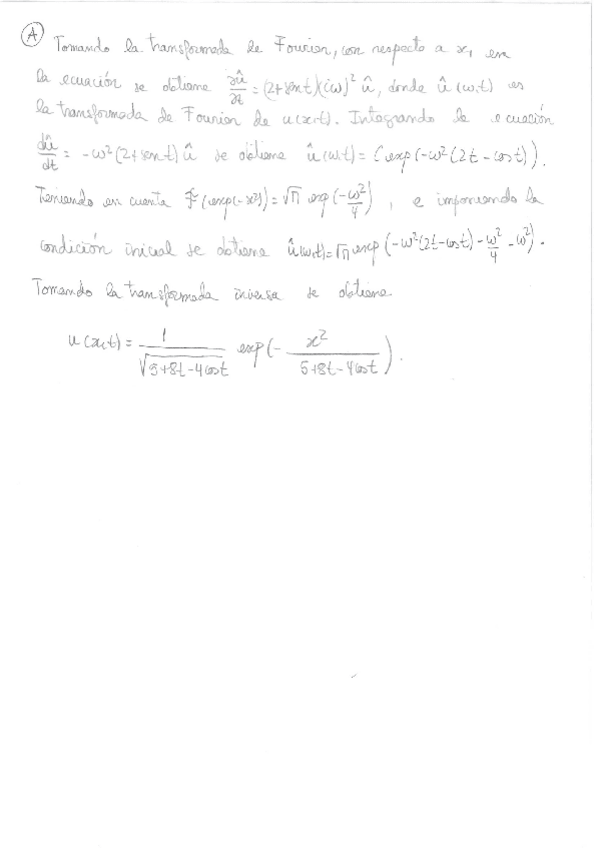 (A) Tomando la transformada de Fourier, con respecto a x, en
la ecuación se obtiene ∂û/∂t = (2+sent)(iω)² û, donde û(ω,t) es
la transformada de Fourier de u(x,t). Integrando la ecuación
dû/dt = -ω²(2+sent)û se obtiene û(ω,t) = C exp(-ω²(2t-cost)).
Teniendo en cuenta F(exp(-x²)) = √π exp(-ω²/4), e imponiendo la
condición inicial se obtiene û(ω,t) = √π exp(-ω²(2t-cost) - ω²/4 - ω²).
Tomando la transformada inversa se obtiene
u(x,t) = 1/√(5+8t-4cost) exp(- x²/(5+8t-4cost)).